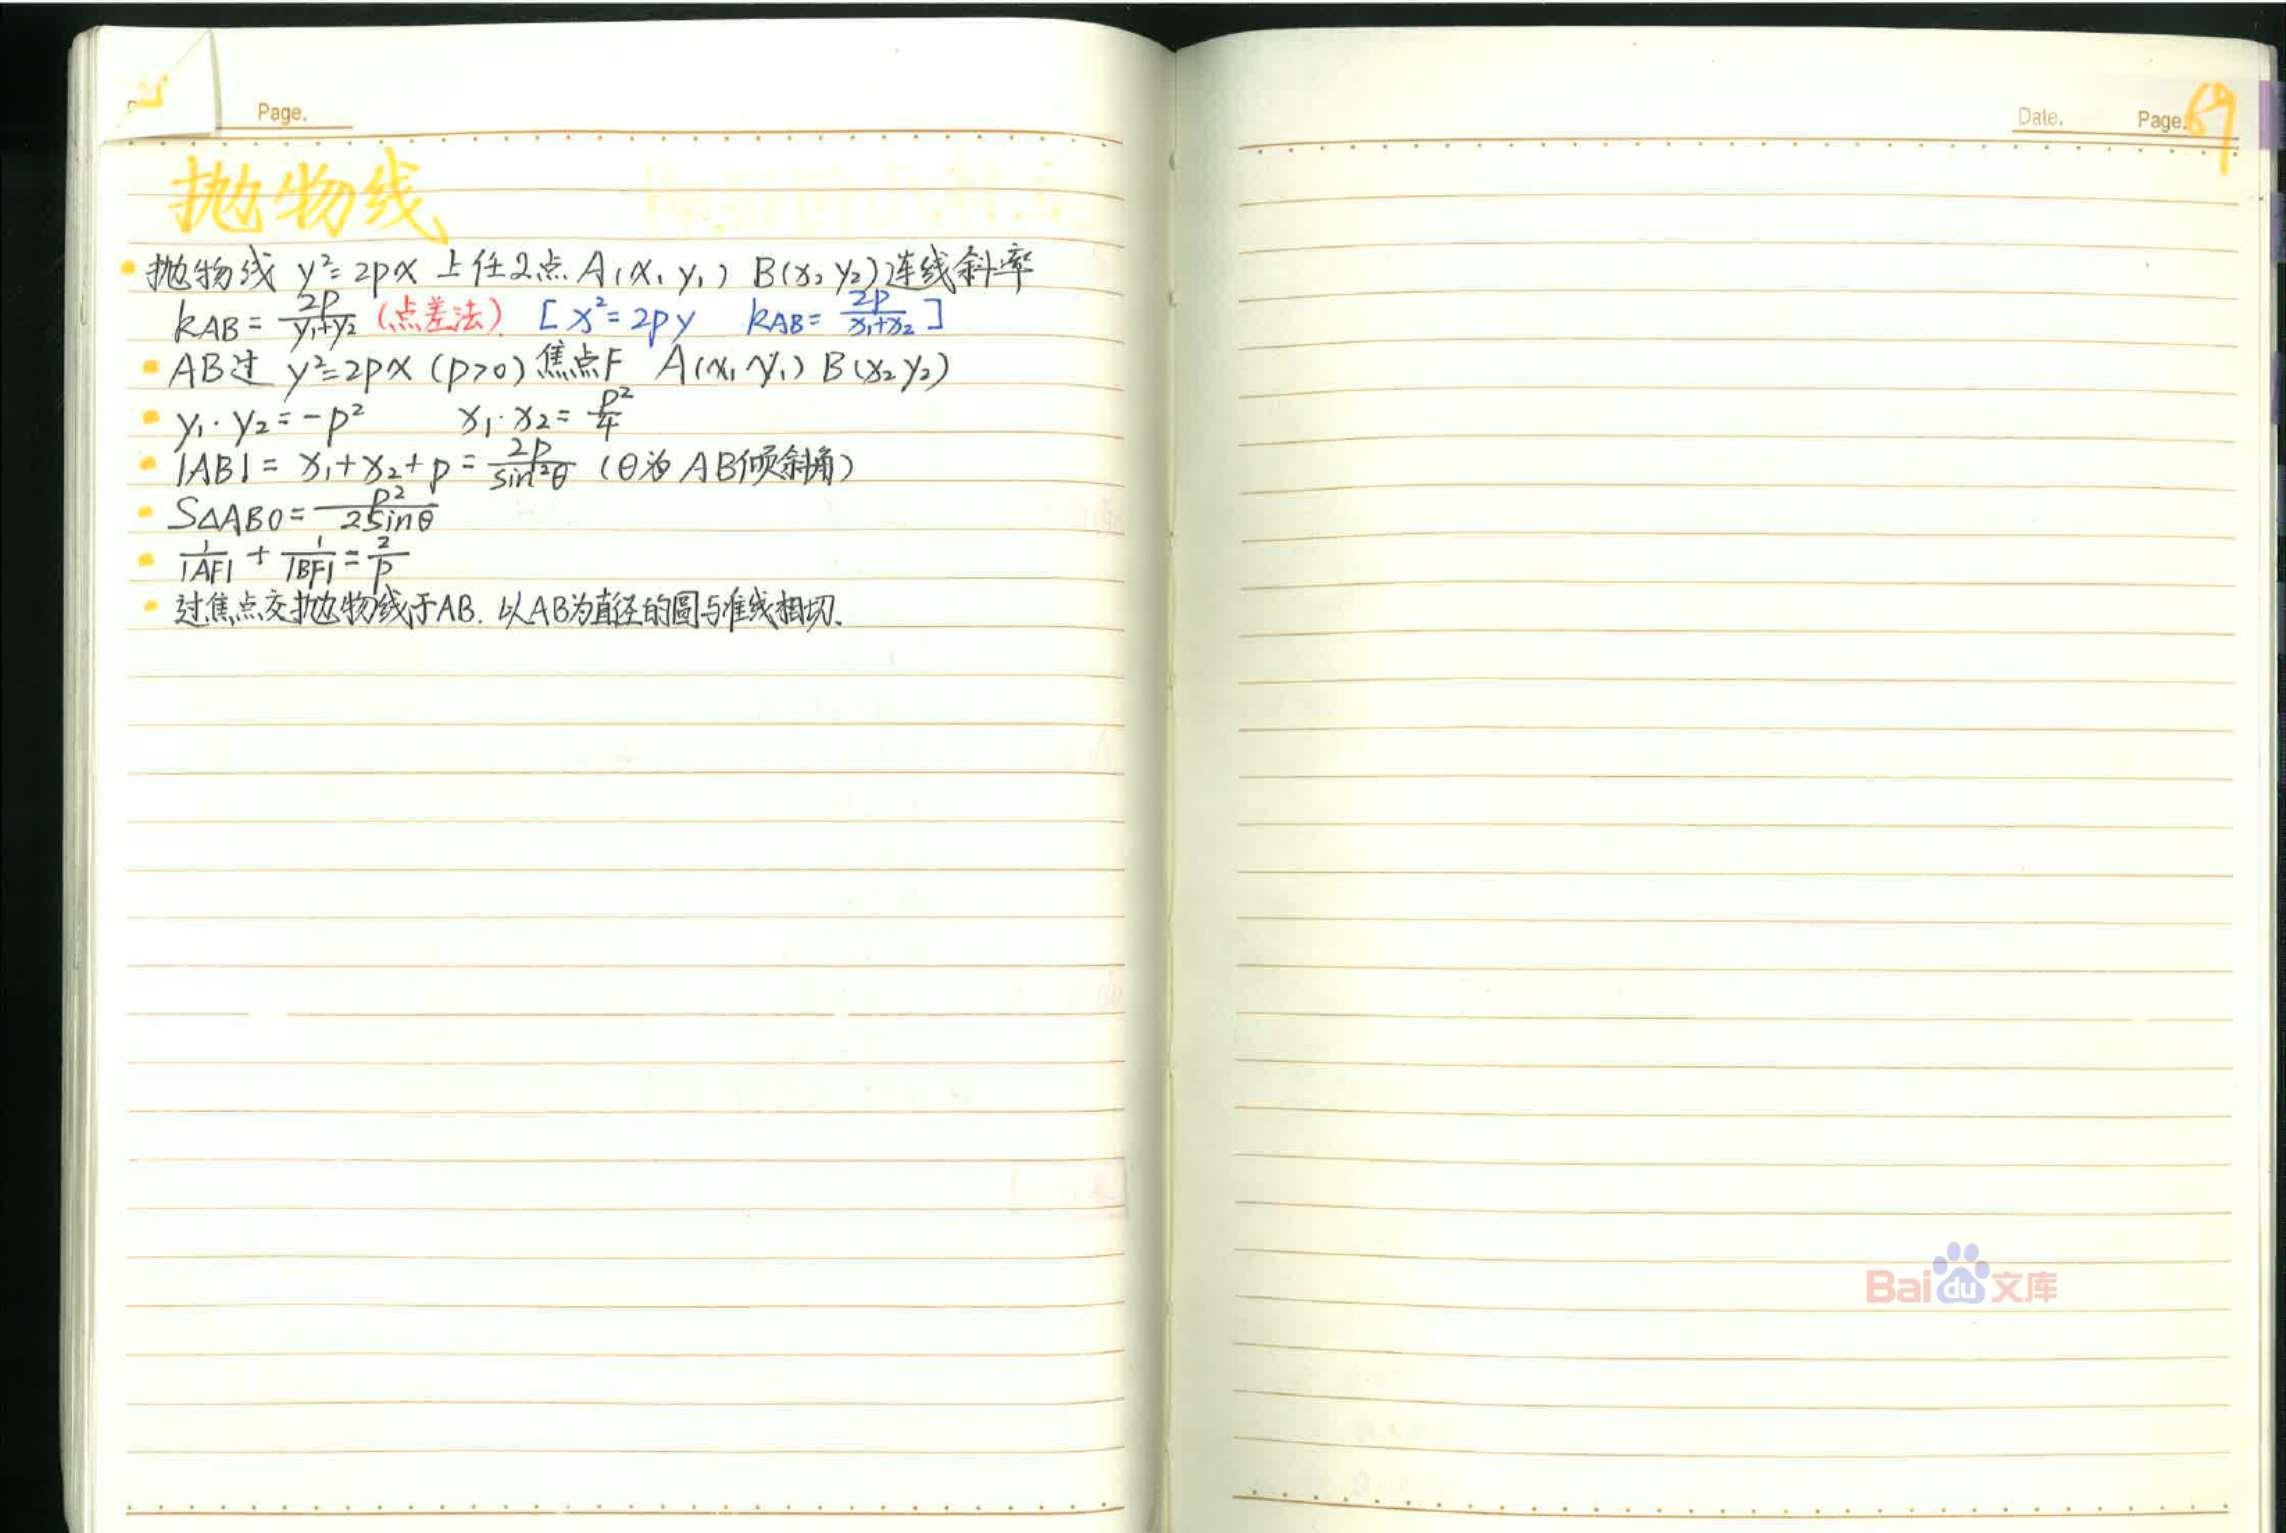 Page.
抛物线
抛物线 y²=2px 上任2点 A(x₁ y₁) B(x₂ y₂)连线斜率
kAB = 2p/(y₁+y₂) (点差法) [x²=2py kAB= 2p/(x₁+x₂)]
AB过 y²=2px (p>0) 焦点F A(x₁ y₁) B(x₂ y₂)
y₁·y₂=-p² x₁·x₂= p²/4
|AB| = x₁+x₂+p = 2p/sin²θ (θ为AB倾斜角)
S△ABO= p²/2sinθ
1/|AF| + 1/|BF| = 2/p
过焦点交抛物线于AB. 以AB为直径的圆与准线相切.
Date. Page. 69
Baidu文库